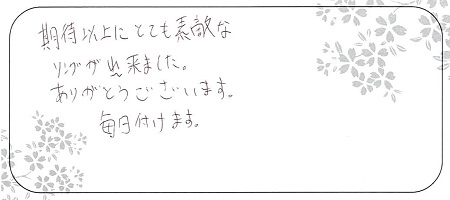 期待以上にとても素敵な
リングが出来ました。
ありがとうございます。
毎日付けます。